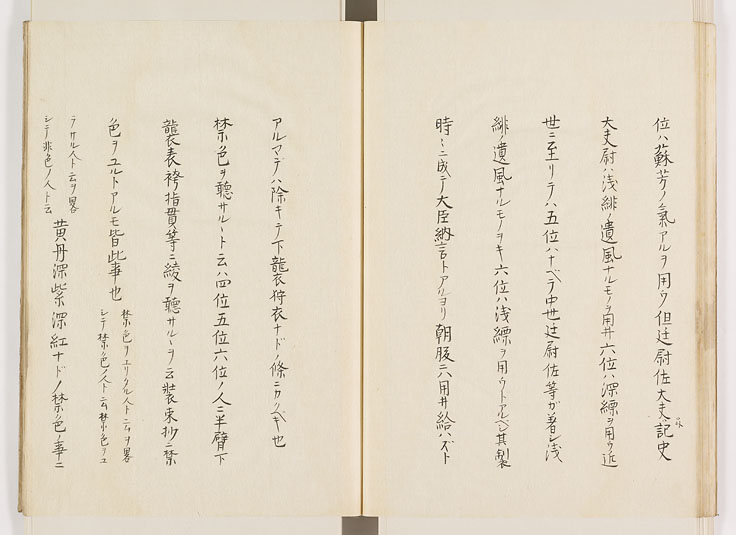 位ハ蘇芳ノ氣アルヲ用ウ但廷尉佐大夫記史
大夫尉ハ浅緋ノ遺風ナルモノヲ用井六位ハ深縹ヲ用ウ近
世ニ至リテハ五位ハナベテ中世廷尉佐等ガ著シ浅
緋ノ遺風ナルモノヲキ六位ハ浅縹ヲ用ウトアルベシ其製
時ニ成テ大臣納言トアルヨリ朝服ニハ用井給ハズト
アルマデハ除キテ下襲狩衣ナドノ條ニカクベキ也
禁色ヲ聴サルヽト云ハ四位五位六位ノ人ニ半臂下
襲表袴指貫等ニ綾ヲ聴サルヽヲ云装束抄ニ禁
色ヲユルトアルモ皆此事也
禁色ヲユリタル人ト云ヲ畧
シテ禁色ノ人ト云禁色ヲユ
ラサル人ト云ヲ畧
シテ非色ノ人ト云
黄丹深紫深紅ナドノ禁色ノ事ニ